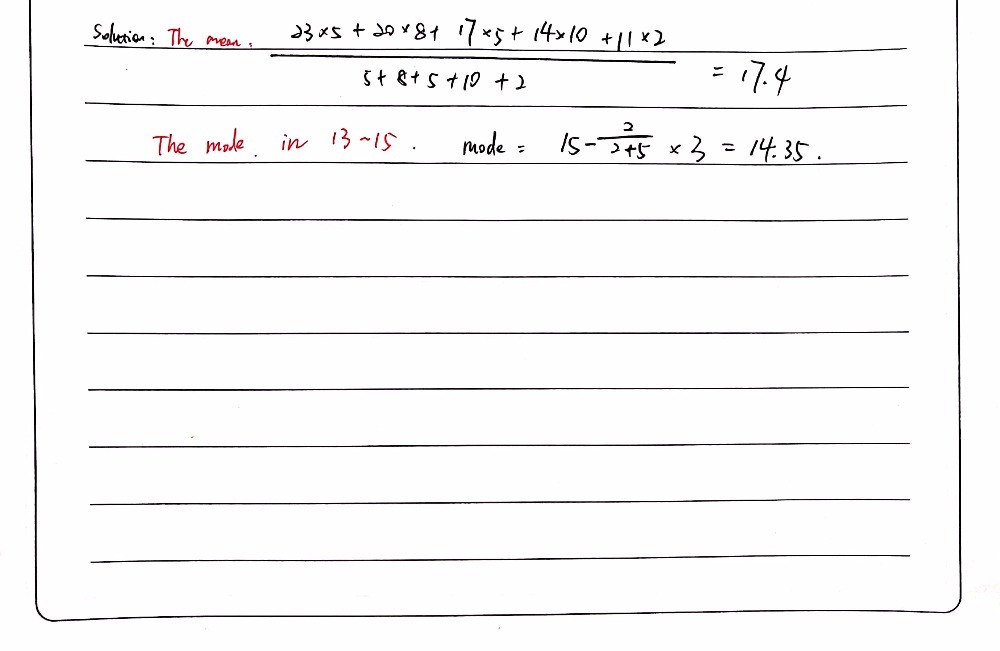 Solution: The mean: (23×5 + 20×8 + 17×5 + 14×10 + 11×2) / (5+8+5+10+2) = 17.4
The mode. in 13~15. mode = 15 - 2/(2+5) × 3 = 14.35.